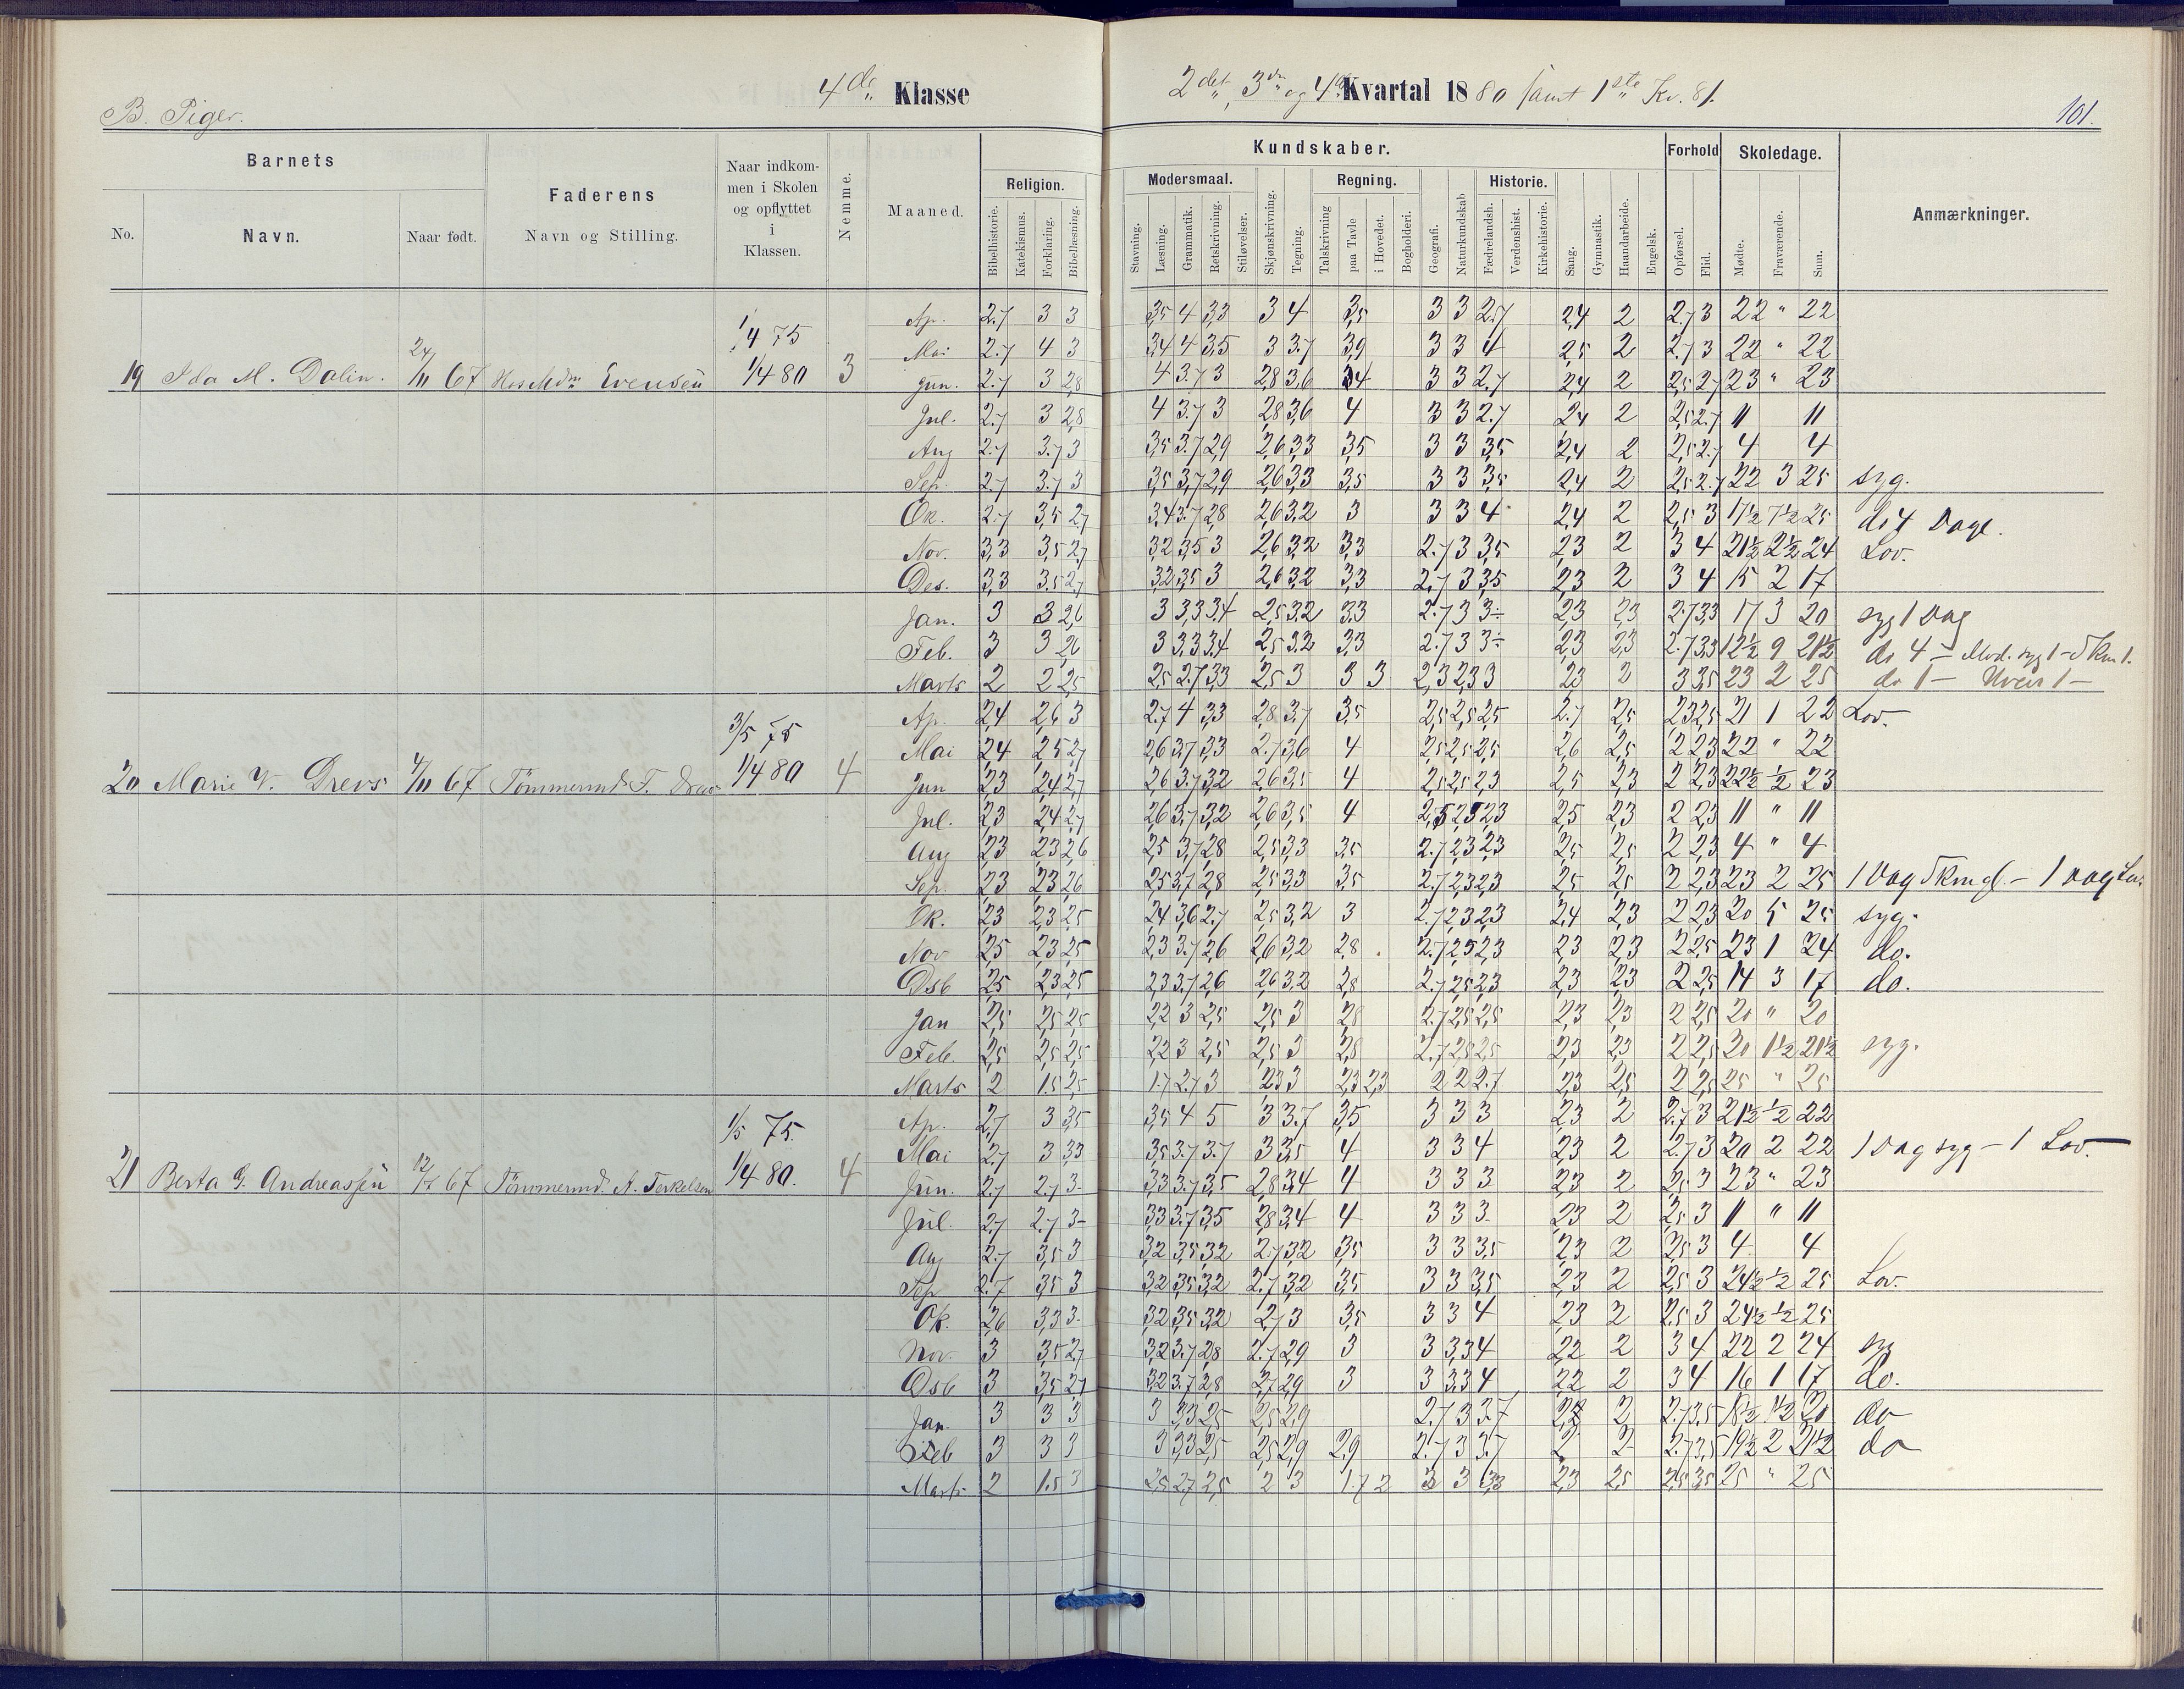 B. Piger. 4de Klasse 2det, 3de og 4de Kvartal 1880 samt 1ste Kv. 81. 101.
Barnets
No.
Navn.
Naar født.
Faderens
Navn og Stilling.
Naar indkom-
men i Skolen
og opflyttet
i
Klassen.
Nemme.
Maaned.
Kundskaber.
Religion.
Bibelhistorie.
Katekismus.
Forklaring.
Bibellæsning.
Modersmaal.
Stavning.
Læsning.
Grammatik.
Retskrivning.
Stiløvelser.
Skjønskrivning.
Tegning.
Regning.
Talskrivning
paa Tavle
i Hovedet.
Bogholderi.
Geografi.
Naturkundskab
Historie.
Fædrelandsh.
Verdenshist.
Kirkehistorie.
Sang.
Gymnastik.
Haandarbeide.
Engelsk.
Forhold
Opførsel.
Flid.
Skoledage.
Mødte.
Fraværende.
Sum.
Anmærkninger.
1/4 75
19 Ida M. Dalin. 24/11 67 Evensen 1/4 80 3
Ap. 2.7 3 3 3,5 4 3,3 3 4 3,5 3 3 2.7 2,4 2 2.7 3 22 " 22
Mai 2.7 4 3 3,4 4 3,5 3 3.7 3,9 3 3 4 2,5 2 2.7 3 22 " 22
Jun. 2.7 3 2,8 4 3.7 3 2,8 3,6 3 3 2.7 2,4 2 2,5 2.7 23 " 23
Jul. 2.7 3 2,8 4 3.7 3 2,8 3,6 4 3 3 2.7 2,4 2 2,5 2.7 11 11
Aug 2.7 3.7 3 3,5 3.7 2,9 2,6 3,3 3,5 3 3 3,5 2,4 2 2,5 2.7 4 4
Sep. 2.7 3.7 3 3,5 3,7 2,9 2,6 3,3 3,5 3 3 3,5 2,4 2 2,5 2.7 22 3 25 syg.
Ok. 2.7 3,5 2,7 3,4 3.7 2,8 2,6 3,2 3 3 3 4 2,4 2 2,5 3 17½ 7½ 25 do 4 Dage.
Nov. 3,3 3,5 2,7 3,2 3,5 3 2,6 3,2 3,3 2.7 3 3,5 2,3 2 3 4 21½ 2½ 24 Lov.
Des. 3,3 3,5 2,7 3,2 3,5 3 2,6 3,2 3,3 2,7 3 3,5 2,3 2 3 4 15 2 17
Jan. 3 3 2,6 3 3,3 3.4 2,5 3,2 3,3 2.7 3 3 2,3 2,3 2.7 3,3 17 3 20 syg 1 Dag
Feb. 3 3 2,6 3 3,3 3,4 2,5 3,2 3,3 2.7 3 3 2,3 2,3 2.7 3,3 12½ 9 21½ do 4 –
Marts 2 2 2,5 2,5 2.7 3,3 2,5 3 3 3 2,3 2,3 3 2,3 2 3 3,5 23 2 25 do 1 – Uveir 1 –
3/5 75
20 Marie V. Drevs 4/11 67 Tømmermd. T. Drevs 1/4 80 4
Ap. 2,4 2,6 3 2.7 4 3,3 2,8 3,7 3,5 2,5 2,5 2,5 2.7 2,5 2,3 2,5 21 1 22 Lov.
Mai 2,4 2,5 2,7 2,6 3,7 3,3 2.7 3,6 4 2,5 2,5 2,5 2,6 2,5 2 2,3 22 " 22
Jun 2,3 2,4 2,7 2,6 3.7 3,2 2,6 3,5 4 2,5 2,5 2,3 2,5 2,3 2 2,3 22½ ½ 23
Jul. 2,3 2,4 2,7 2,6 3.7 3,2 2,6 3,5 4 2,5 2,5 2,3 2,5 2,3 2 2,3 11 " 11
Aug 2,3 2,3 2,6 2,5 3,7 2,8 2,5 3,3 3,5 2.7 2,3 2,3 2,5 2,5 2 2,3 4 " 4
Sep. 2,3 2,3 2,6 2,5 3,7 2,8 2,5 3,3 3,5 2.7 2,3 2,3 2,5 2,5 2 2,3 23 2 25 1 Dag – 1 Dag Lov.
Ok. 2,3 2,3 2,5 2,4 3,6 2.7 2,5 3,2 3 2.7 2,3 2,3 2,4 2,3 2 2,3 20 5 25 syg.
Nov 2,5 2,3 2,5 2,3 3.7 2,6 2,6 3,2 2,8 2.7 2,5 2,3 2,3 2,3 2 2,5 23 1 24 do.
Dsb 2,5 2,3 2,5 2,3 3.7 2,6 2,6 3,2 2,8 2.7 2,5 2,3 2,3 2,3 2 2,5 14 3 17 do.
Jan 2,5 2,5 2,5 2,2 3 2,5 2,5 3 2,8 2.7 2,5 2,5 2,3 2,3 2 2,5 20 " 20
Feb. 2,5 2,5 2,5 2,2 3 2,5 2,5 3 2,8 2.7 2,5 2,5 2,3 2,3 2 2,5 20 1½ 21½ syg.
Marts 2 1.5 2,5 1.7 2.7 3 2,3 3 2,3 2,3 2 2 2.7 2,3 2,5 2 2,5 25 " 25
1/5 75.
21 Berta G. Andreassen 67 Tømmermd. A. Terkelsen 1/4 80. 4
Ap. 2,7 3 3,5 3,5 4 5 3 3.7 3,5 3 3 3 2,3 2 2.7 3 21½ ½ 22
Mai 2,7 3 3,3 3,5 3.7 3.7 3 3,5 4 3 3 4 2,3 2 2.7 3 20 2 22 1 Dag syg – 1 Lov.
Jun. 2,7 2.7 3 3,3 3.7 3,5 2,8 3,4 4 3 3 3 2,3 2 2,5 3 23 " 23
Jul. 2,7 2.7 3 3,3 3.7 3,5 2,8 3,4 4 3 3 3 2,3 2 2,5 3 11 " 11
Aug 2.7 3,5 3 3,2 3,5 3,2 2.7 3,2 3,5 3 3 3,5 2,3 2 2,5 3 4 4
Sep 2.7 3,5 3 3,2 3,5 3,2 2.7 3,2 3,5 3 3 3,5 2,3 2 2,5 3 24½ ½ 25 Lov.
Ok. 2,6 3,3 3 3,2 3,5 3,2 2,7 3 3,5 3 3 4 2,3 2 2,5 3 24½ ½ 25
Nov. 3 3,5 2,7 3,2 3.7 2,8 2.7 2,9 3 3 3,3 4 2,2 2 3 4 22 2 24 syg
Dsb 3 3,5 2,7 3,2 3.7 2,8 2,7 2,9 3 3 3,3 4 2,2 2 3 4 16 1 17 do.
Jan. 3 3 3 3 3,3 2,5 2,5 2,9 2.7 3 3.7 2 2.7 3,5 18½ 1½ 20 do
Feb 3 3 3 3 3,3 2,5 2,5 2,9 2,9 2.7 3 3.7 2 2 2.7 3,5 19½ 2 21½ do
Marts 2 1.5 3 2,5 2,7 2,5 2 3 1.7 2 3 3 3,3 2,3 2,5 2,5 3,5 25 " 25